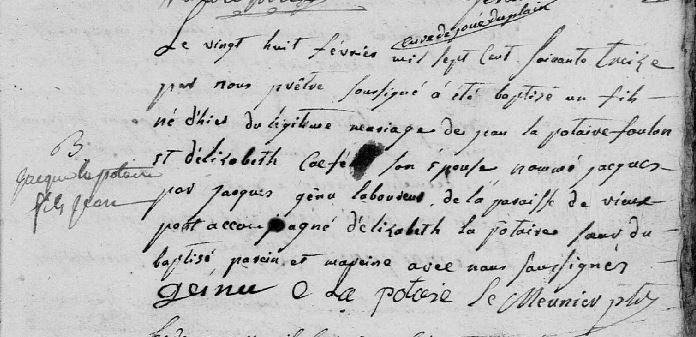 curé de joué du plain
Le vingt huit février mil sept cent soixante treize
par nous prêtre soussigné a été baptisé un fils
né d'hier du légitime mariage de jean la potaire foulon
B.
jacque la potaire
fils jean
et d'élizabeth son épouse nommé jacques
par jacques génu laboureur, de la paroisse de vieux
pont accompagné d'élizabeth la potaire sœur du
baptisé parein et mareine avec nous soussignés
geinu E La potaire Le Meunier ptre